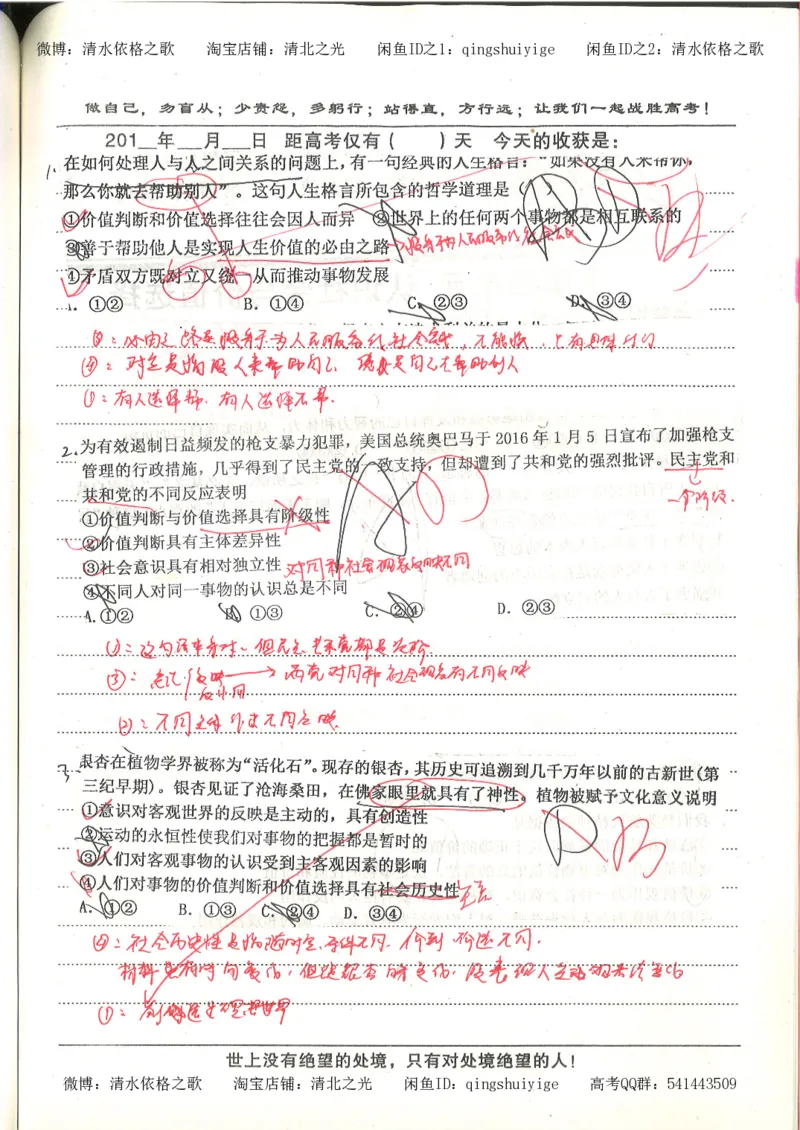 微博：清水依格之歌 淘宝店铺：清北之光 闲鱼ID之1：qingshuiyige 闲鱼ID之2：清水依格之歌
做自己，勿盲从；少贵怨，多躬行；站得直，方行远；让我们一起战胜高考！
201__年___月___日 距高考仅有（ ）天 今天的收获是：
1.
在如何处理人与人之间关系的问题上，有一句经典的人生格言：“如果没有人来帮你，
那么你就去帮助别人”。这句人生格言所包含的哲学道理是（ ）
①价值判断和价值选择往往会因人而异 ②世界上的任何两个事物都是相互联系的
③善于帮助他人是实现人生价值的必由之路
④矛盾双方既对立又统一从而推动事物发展
A. ①② B. ①④ C. ②③ D. ③④
③：必由之路是
④：对立是指没人来帮助自己
①：有人选择帮，有人选择不帮.
2.为有效遏制日益频发的枪支暴力犯罪，美国总统奥巴马于 2016 年 1 月 5 日宣布了加强枪支
管理的行政措施，几乎得到了民主党的一致支持，但却遭到了共和党的强烈批评。民主党和
共和党的不同反应表明
一个阶级.
①价值判断与价值选择具有阶级性
②价值判断具有主体差异性
③社会意识具有相对独立性 对同种社会现象反映不同
④不同人对同一事物的认识总是不同
A.①② B. ①③ C. ②④ D. ②③
①：这句话本身对、但
③： 两党对同种社会现象有不同反映
②：不同主体
3.
银杏在植物学界被称为“活化石”。现存的银杏，其历史可追溯到几千万年以前的古新世(第
三纪早期)。银杏见证了沧海桑田，在佛家眼里就具有了神性。植物被赋予文化意义说明
①意识对客观世界的反映是主动的，具有创造性
②运动的永恒性使我们对事物的把握都是暂时的
③人们对客观事物的认识受到主客观因素的影响
④人们对事物的价值判断和价值选择具有社会历史性
A. ①② B. ①③ C. ②④ D. ③④
④：社会历史性是指随时空、条件不同，价判 价选不同.
①：
世上没有绝望的处境，只有对处境绝望的人！
微博：清水依格之歌 淘宝店铺：清北之光 闲鱼ID：qingshuiyige 高考QQ群：541443509